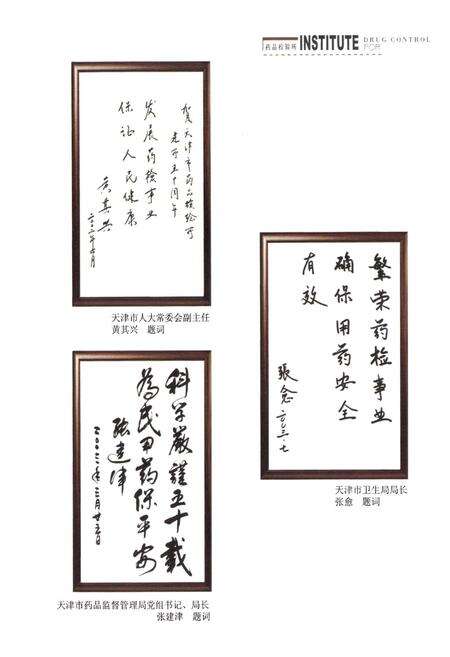 药品检验所 INSTITUTE DRUG CONTROL
FOR
贺天津市药品检验所
建所五十周年
发展药检事业
保证人民健康
黄其兴
天津市人大常委会副主任
黄其兴 题词
繁荣药检事业
确保用药安全
有效
張愈 二〇〇三.七
天津市卫生局局长
张愈 题词
科学嚴謹五十載
為民用药保平安
张建津
天津市药品监督管理局党组书记、局长
张建津 题词